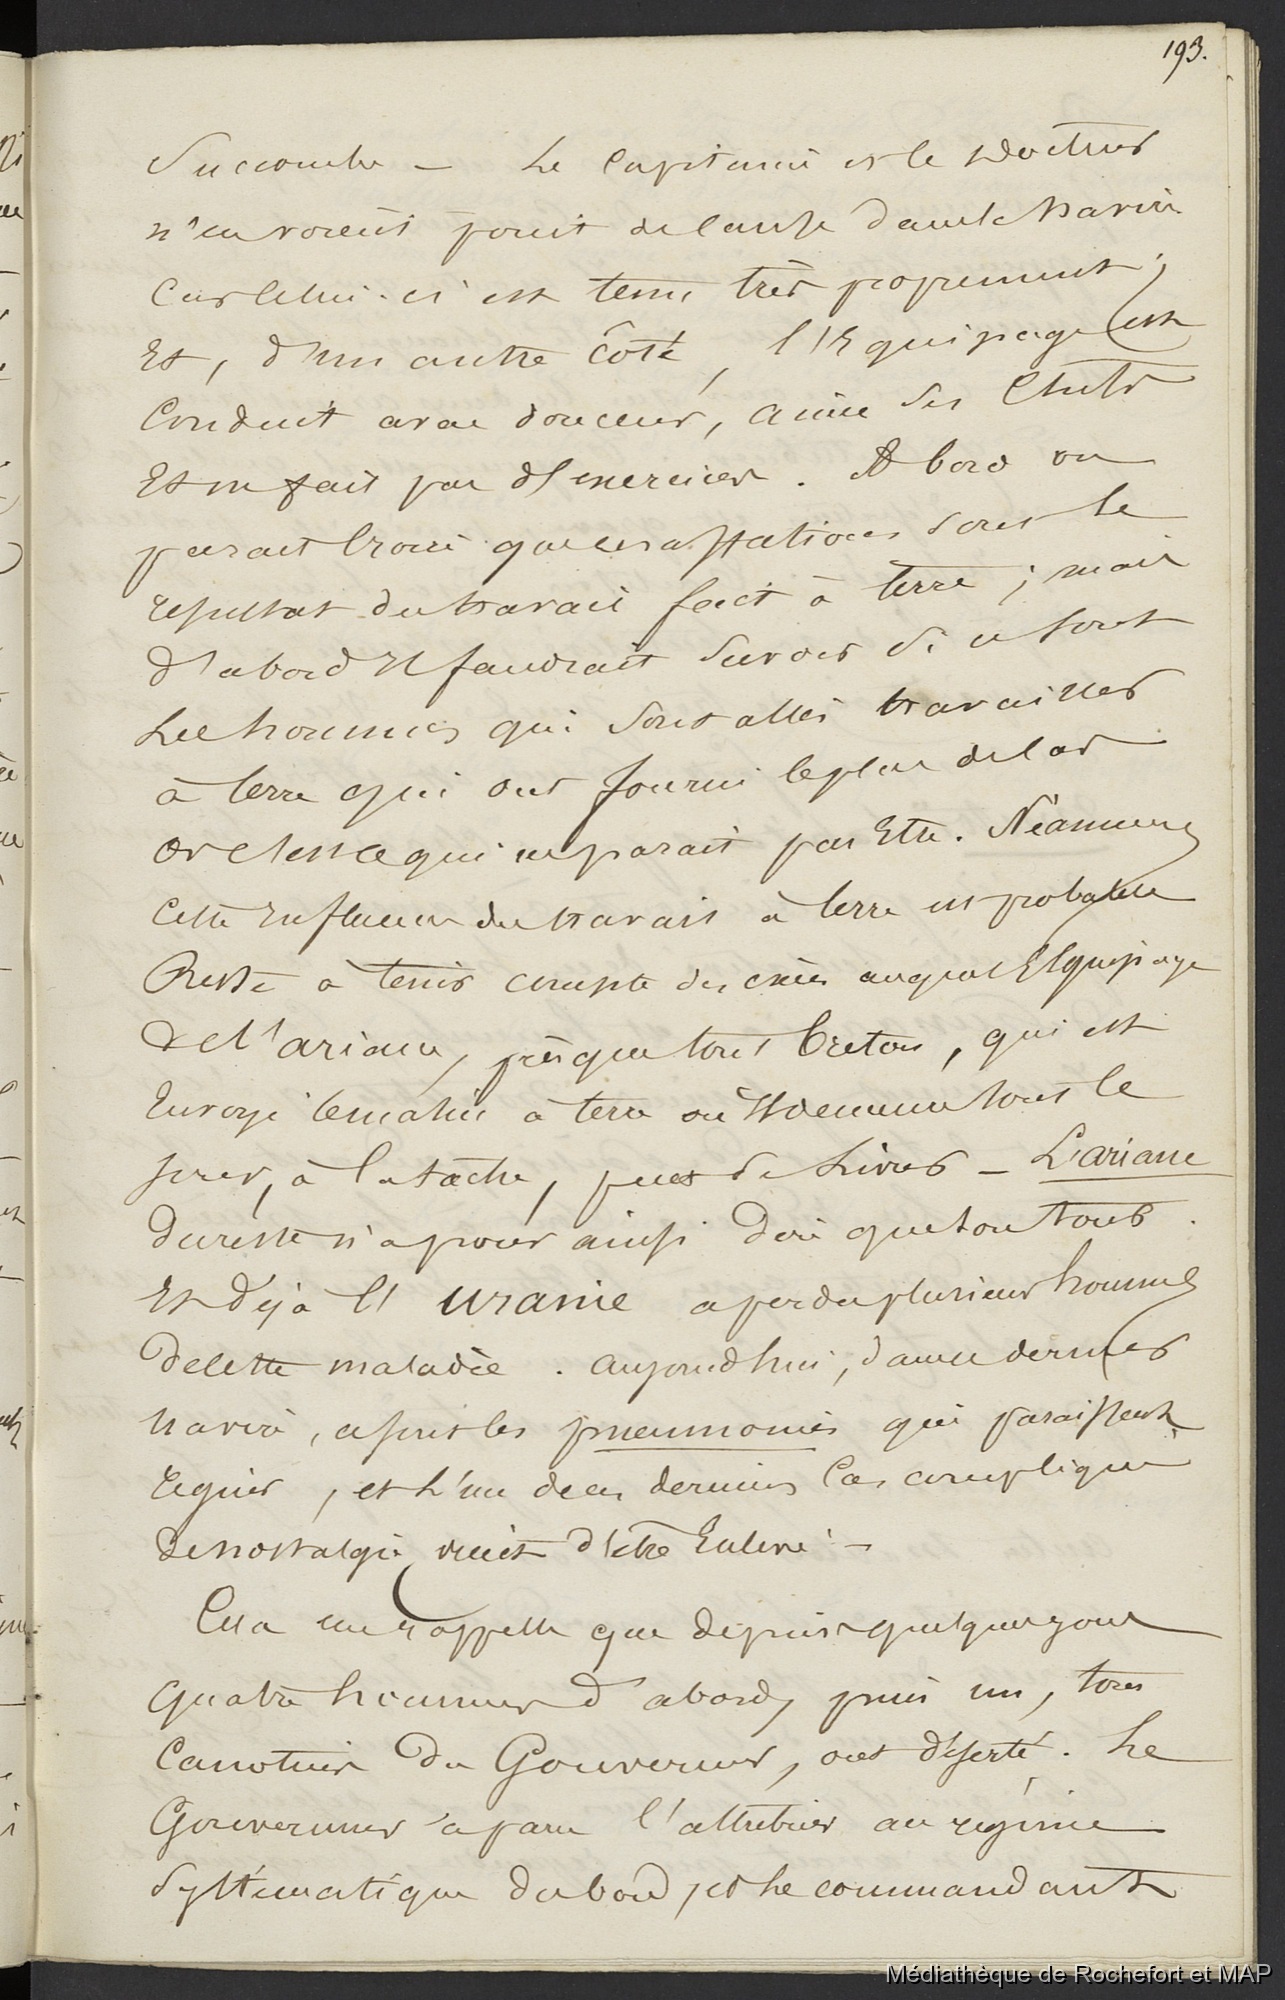 193.
Succombe — Le Capitaine et le Docteur
n'en voient point de cause dans le navire
Car celui-ci est tenu très proprement,
Et, d'un autre côté, l'Equipage est
Conduit avec douceur, aime ses Chefs
Et ne fait pas d'exercices. A bord on
parait croire que ces affections sont le
resultat du travail fait à terre ; mais
d'abord Il faudrait savoir si ce sont
Les hommes qui sont allés travailler
à terre qui ont fourni le plus de cas
or c'est ce qui ne parait pas Etre. Néanmoins
Cette Influence du travail à terre est probable
Reste à tenir compte des excès auquel l'Equipage
de l'ariane, presque tous bretons, qui est
Envoyé le matin à terre où Il demeure tout le
jour, à la tâche, peut se livrer — L'ariane
du reste n'a pour ainsi dire que son tour
Et déjà l'Uranie a perdu plusieurs hommes
de cette maladie. aujourd'hui, dans ce dernier
navire, ce sont les pneumonies qui paraissent
regner, et l'un de ces derniers Cas compliqué
de nostalgie vient d'être Enlevé —
Cela me rappelle que depuis quelques jours
quatre hommes d'abord, puis un, tous
Canotiers du Gouverneur, ont déserté. Le
Gouverneur a paru l'attribuer au régime
systématique du bord, et le commandant
Médiathèque de Rochefort et MAP